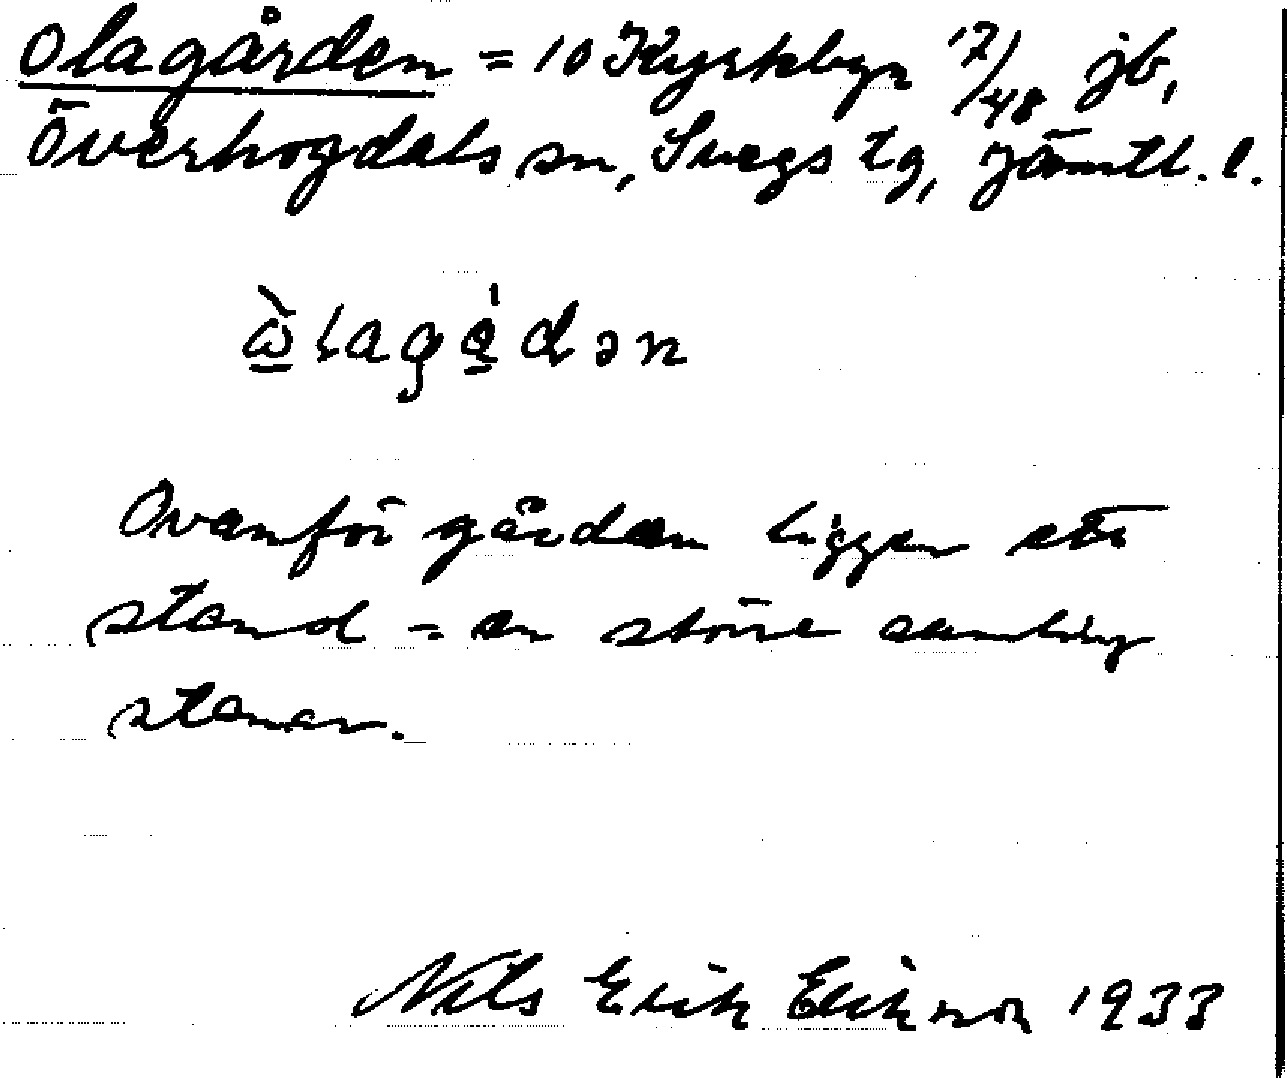 Olagården = 10 Kyrkbyn 17/48 jb,
Överhogdals sn, Svegs tg, Jämtl. l.
ὼlagǻdən
Ovanför gården ligger ett
stend = en större samling
stenar.
Nils Erik Eriksson 1933